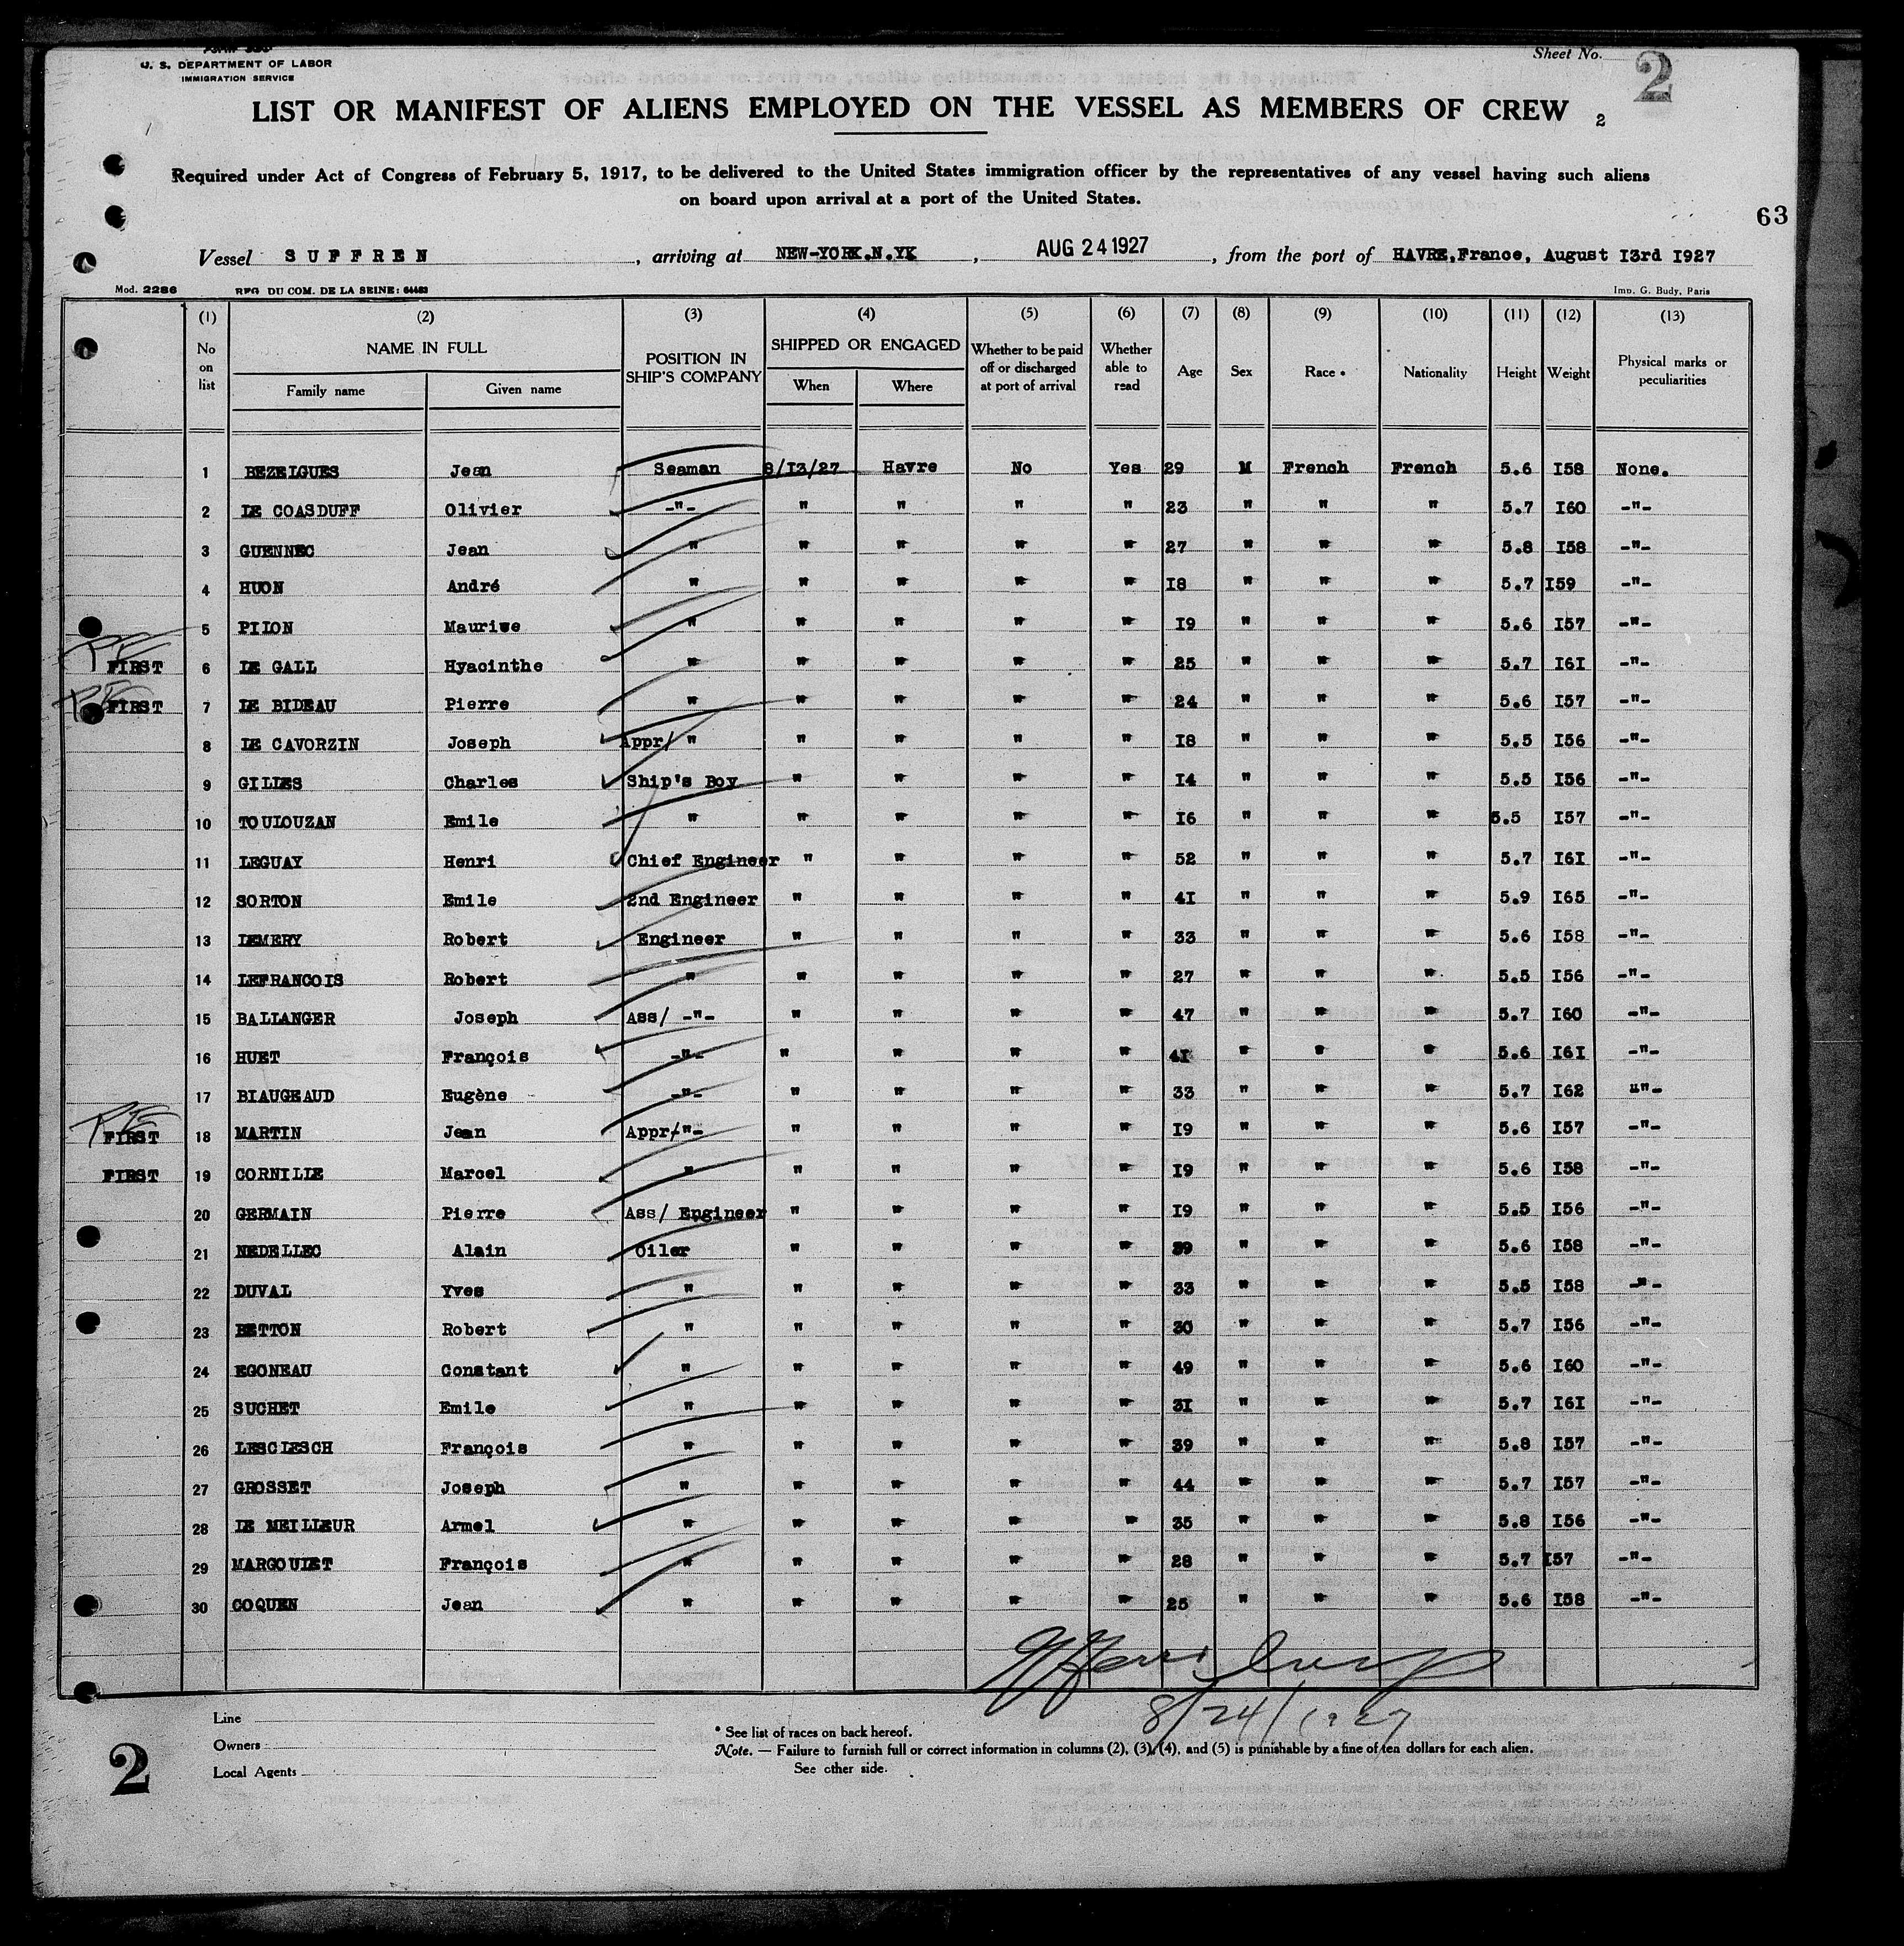 U. S. DEPARTMENT OF LABOR
IMMIGRATION SERVICE
Sheet No. 2
LIST OR MANIFEST OF ALIENS EMPLOYED ON THE VESSEL AS MEMBERS OF CREW 2
Required under Act of Congress of February 5, 1917, to be delivered to the United States immigration officer by the representatives of any vessel having such aliens
on board upon arrival at a port of the United States.
63
Vessel SUFFREN, arriving at NEW-YORK.N.YK, AUG 24 1927, from the port of HAVRE,France, August I3rd I927
Mod. 2286 REG DU COM. DE LA SEINE: 64463 Imp. G. Budy, Paris
(1) (2) (3) (4) (5) (6) (7) (8) (9) (10) (11) (12) (13)
No on list NAME IN FULL Family name Given name POSITION IN SHIP'S COMPANY SHIPPED OR ENGAGED When Where Whether to be paid off or discharged at port of arrival Whether able to read Age Sex Race • Nationality Height Weight Physical marks or peculiarities
1 BEZEIGUES Jean Seaman 8/I3/27 Havre No Yes 29 M French French 5.6 I58 None.
2 LE COASDUFF Olivier -"- " " " " 23 " " " 5.7 I60 -"-
3 GUENNEC Jean " " " " " 27 " " " 5.8 I58 -"-
4 HUON André " " " " " I8 " " " 5.7 I59 -"-
5 PILON Maurise " " " " " I9 " " " 5.6 I57 -"-
FIRST 6 LE GALL Hyacinthe " " " " " 25 " " " 5.7 I6I -"-
FIRST 7 LE BIDEAU Pierre " " " " " 24 " " " 5.6 I57 -"-
8 LE CAVORZIN Joseph Appr/ " " " " " I8 " " " 5.5 I56 -"-
9 GILLES Charles Ship's Boy " " " " I4 " " " 5.5 I56 -"-
10 TOULOUZAN Emile " " " " " I6 " " " 5.5 I57 -"-
11 LEGUAY Henri Chief Engineer " " " " 52 " " " 5.7 I6I -"-
12 SORTON Emile 2nd Engineer " " " " 4I " " " 5.9 I65 -"-
13 LEMERY Robert Engineer " " " " 33 " " " 5.6 I58 -"-
14 LEFRANCOIS Robert " " " " " 27 " " " 5.5 I56 -"-
15 BALLANGER Joseph Ass/ -"- " " " " 47 " " " 5.7 I60 -"-
16 HUET François -"- " " " " 4I " " " 5.6 I6I -"-
17 BIAUGEAUD Eugène -"- " " " " 33 " " " 5.7 I62 -"-
FIRST 18 MARTIN Jean Appr/"- " " " " I9 " " " 5.6 I57 -"-
FIRST 19 CORNILLE Marcel " " " " " I9 " " " 5.6 I58 -"-
20 GERMAIN Pierre Ass/ Engineer " " " " I9 " " " 5.5 I56 -"-
21 NEDELLEC Alain Oiler " " " " 39 " " " 5.6 I58 -"-
22 DUVAL Yves " " " " " 33 " " " 5.5 I58 -"-
23 BETTON Robert " " " " " 30 " " " 5.7 I56 -"-
24 EGONEAU Constant " " " " " 49 " " " 5.6 I60 -"-
25 SUCHET Emile " " " " " 3I " " " 5.7 I6I -"-
26 LESCLESCH François " " " " " 39 " " " 5.8 I57 -"-
27 GROSSET Joseph " " " " " 44 " " " 5.7 I57 -"-
28 LE MEILLEUR Armel " " " " " 35 " " " 5.8 I56 -"-
29 MARGOULET François " " " " " 28 " " " 5.7 I57 -"-
30 COQUEN Jean " " " " " 25 " " " 5.6 I58 -"-
8/24/1927
Line
Owners
Local Agents
* See list of races on back hereof.
Note. — Failure to furnish full or correct information in columns (2), (3), (4), and (5) is punishable by a fine of ten dollars for each alien.
See other side.
2